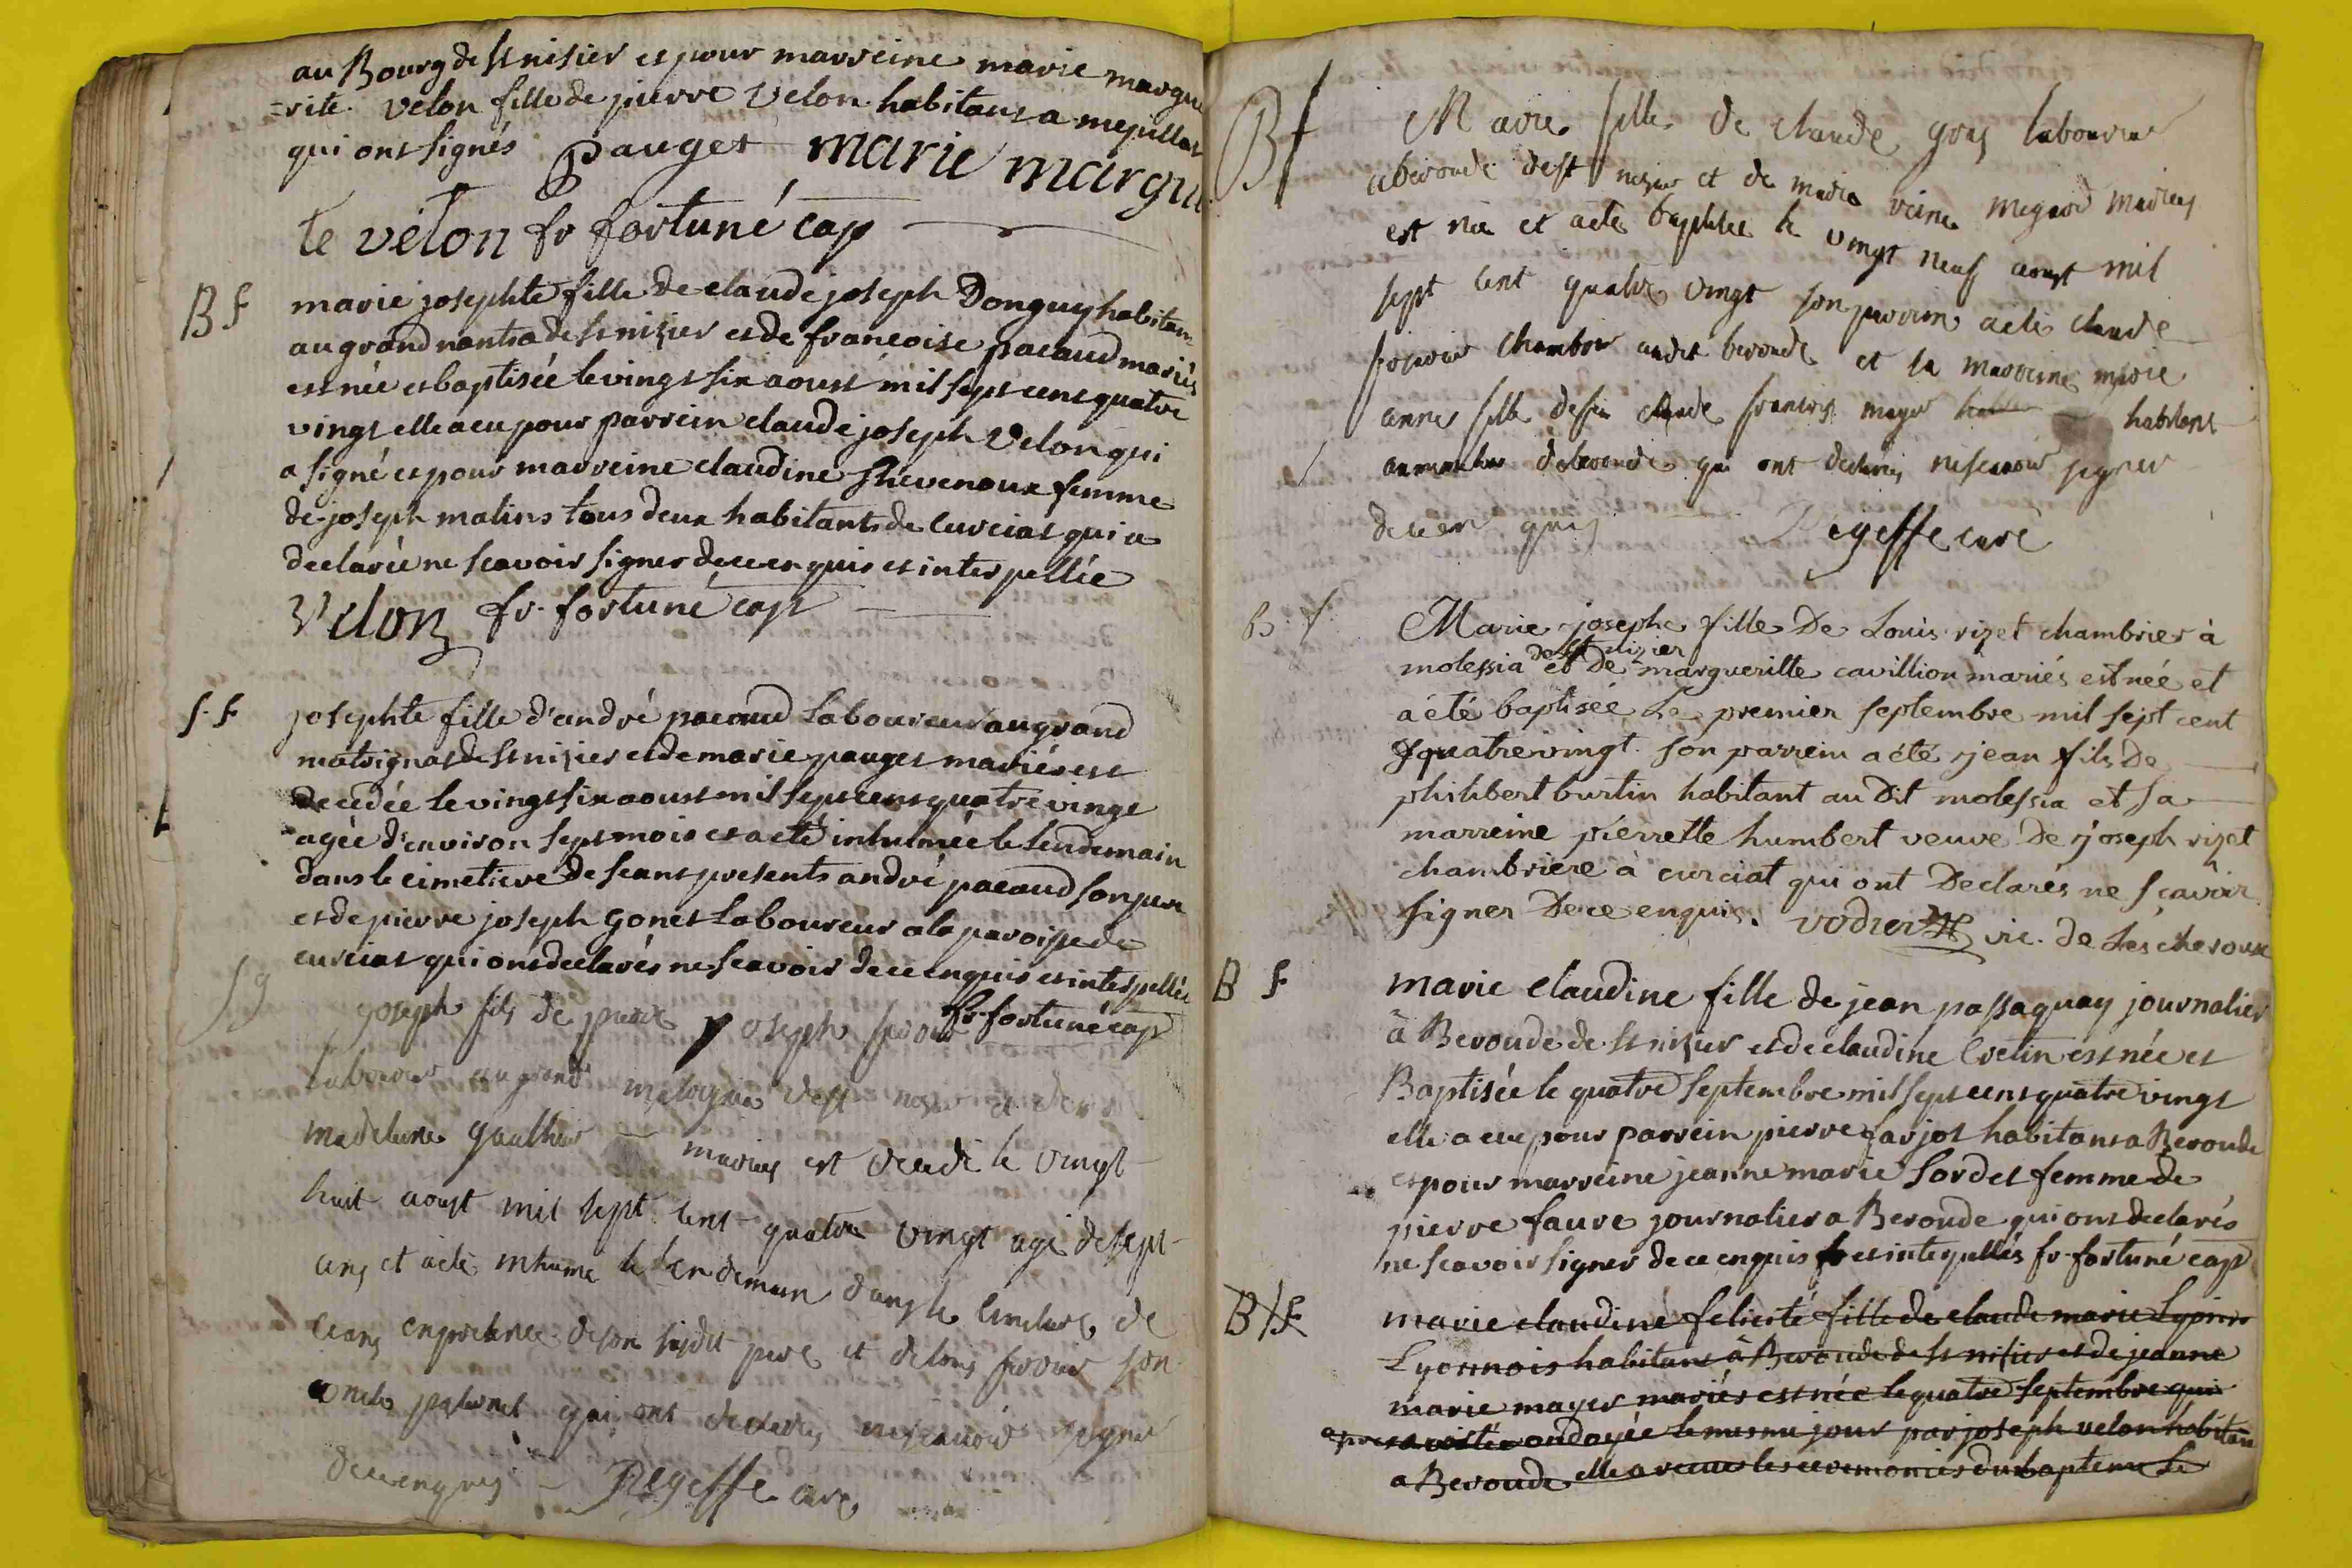 au Bourg de st nisier et pour marreine marie margue
=rite velon fille de pierre velon habitant a mepillat
qui ont signés Pauget marie margu
te velon fr fortuné cap
B f marie josephte fille de claude joseph Donguy habitan
au grand nantia de st nizier et de francoise pacaud mariés
est née et baptisée le vingt six aoust mil sept cent quatre
vingt elle a eu pour parrein claude joseph Velon qui
a signé et pour marreine claudine thevenoux femme
de joseph matins tous deux habitants de curciat qui a
declarée ne scavoir signer de ce enquis et interpellée
Velon fr. fortuné cap
s. f josephte fille d'andré pacaud Laboureur au grand
matrignat de st nizier et de marie pauget mariés est
decedée le vingt six aoust mil sept cent quatre vingt
agée d'environ sept mois et a eté inhumée le lendemain
dans le cimetiere de ceant presents andré pacaud son pere
et de pierre joseph gonet Laboureur a la paroisse de
curciat qui ont declarés ne scavoir de ce enquis et interpellés
fr. fortuné cap
s g joseph fils de pierre joseph
laboureur au grand de st nizier et de
madeleine gauthier mariés est decedé le vingt
huit aoust mil sept cent quatre vingt agé de sept
ans et a eté inhumé le lendemain dans le cimetiere de
ceans en presence de son susdit pere et de son
oncle paternel qui ont declarés ne scavoir signer
de ce enquis Regeffe curé
B f Marie fille de claude gras laboureur
a beroude de st nizier et de marie reine megard mariés
est née et a eté baptisée le vingt neuf aoust mil
sept cent quatre vingt son parrein a eté claude
chambon audit beroude et la marreine marie
anne fille de feu claude francois mayer habitant
de beroude qui ont declarés ne scavoir signer
de ce enquis Regeffe curé
B. f. Marie josephe fille De Louis rizet chambrier à
de st nizier
molessia et de marguerite cavillion mariés est née et
a été baptisée Le premier septembre mil sept cent
quatrevingt. son parrein a été jean fils De
philibert burtin habitant au Dit molessia et sa
marreine pierrette humbert veuve De joseph rizet
chambriere à curciat qui ont Declarés ne scavoir
signer De ce enquis. vodier vic. de Lescheroux
B f marie claudine fille de jean passaquay journalier
à Beroude de st nizier et de claudine Cretin est née et
Baptisée le quatre septembre mil sept cent quatre vingt
elle a eue pour parrein pierre farjot habitant a Beroude
et pour marreine jeanne marie Sordet femme de
pierre faure journalier a Beroude qui ont declarés
ne scavoir signer de ce enquis et interpellés fr. fortuné cap
B f marie claudine felicité fille de claude marie Lyonn
Lyonnois habitant à Beroude de st nisier et de jeanne
marie mayer mariés est née le quatre septembre qui
ondoyée le mesme jour par joseph velon habitan
a Beroude elle a recue les ceremonies du bapteme Le